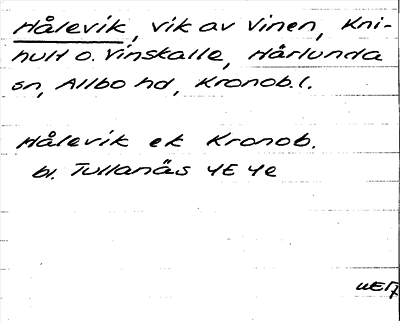 Hålevik, vik av Vinen, Kni-
hult o. Vinskalle, Hårlunda
sn, Allbo hd, Kronob. l.
Hålevik ek Kronob.
bl. Tullanäs 4E 4e